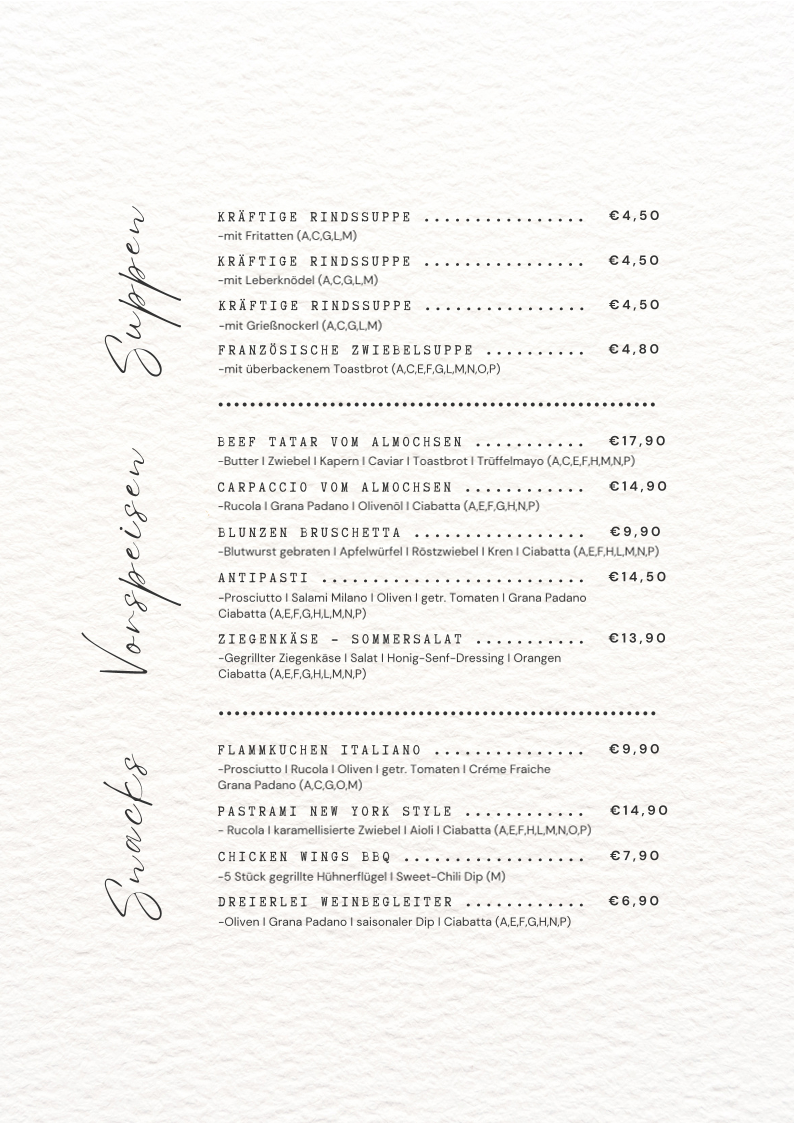 Suppen
KRÄFTIGE RINDSSUPPE ................ €4,50
-mit Fritatten (A,C,G,L,M)
KRÄFTIGE RINDSSUPPE ................ €4,50
-mit Leberknödel (A,C,G,L,M)
KRÄFTIGE RINDSSUPPE ................ €4,50
-mit Grießnockerl (A,C,G,L,M)
FRANZÖSISCHE ZWIEBELSUPPE .......... €4,80
-mit überbackenem Toastbrot (A,C,E,F,G,L,M,N,O,P)
Vorspeisen
BEEF TATAR VOM ALMOCHSEN ........... €17,90
-Butter I Zwiebel I Kapern I Caviar I Toastbrot I Trüffelmayo (A,C,E,F,H,M,N,P)
CARPACCIO VOM ALMOCHSEN ............ €14,90
-Rucola I Grana Padano I Olivenöl I Ciabatta (A,E,F,G,H,N,P)
BLUNZEN BRUSCHETTA ................. €9,90
-Blutwurst gebraten I Apfelwürfel I Röstzwiebel I Kren I Ciabatta (A,E,F,H,L,M,N,P)
ANTIPASTI .......................... €14,50
-Prosciutto I Salami Milano I Oliven I getr. Tomaten I Grana Padano
Ciabatta (A,E,F,G,H,L,M,N,P)
ZIEGENKÄSE - SOMMERSALAT ........... €13,90
-Gegrillter Ziegenkäse I Salat I Honig-Senf-Dressing I Orangen
Ciabatta (A,E,F,G,H,L,M,N,P)
Snacks
FLAMMKUCHEN ITALIANO ............... €9,90
-Prosciutto I Rucola I Oliven I getr. Tomaten I Créme Fraiche
Grana Padano (A,C,G,O,M)
PASTRAMI NEW YORK STYLE ............ €14,90
- Rucola I karamellisierte Zwiebel I Aioli I Ciabatta (A,E,F,H,L,M,N,O,P)
CHICKEN WINGS BBQ .................. €7,90
-5 Stück gegrillte Hühnerflügel I Sweet-Chili Dip (M)
DREIERLEI WEINBEGLEITER ............ €6,90
-Oliven I Grana Padano I saisonaler Dip I Ciabatta (A,E,F,G,H,N,P)